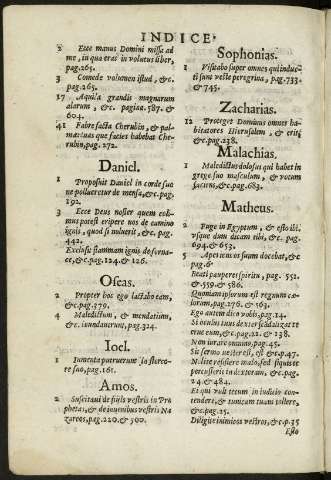 INDICE.
2 Ecce manus Domini missa ad
me, in qua erat in volutus liber,
pag.265.
3 Comede volumen istud, &c.
pag.265.
17 Aquila grandis magnarum
alarum, &c. pagias.587. &
604.
41 Fabre facta Cherubin, & pal-
matuas que facies habebat Che
rubin, pag.272.
Daniel.
1 Proposuit Daniel in corde suo
ne pollueretur de mensa,&c.pag
192.
3 Ecce Deus noster quem coli-
mus potest eripere nos de camino
ignis, quod si noluerit, &c. pag.
442.
Exclusit flammam ignis de forna-
ce, &c.pag.124. & 126.
Oseas.
2 Propter hoc ego lactabo eam,
&c.pag.379.
4 Maledictum, & mendatium,
&c. inundaverunt, pag.324.
Ioel.
1 Iumenta putruerunt in sterco-
re suo, pag.161.
Amos.
2 Suscitavi de filijs vestris in Pro
phetas, & de iuvenibus vestris Na
zareos, pag.220. & 300.
Sophonias.
1 Visitabo super omnes qui induc-
ti sunt veste peregrina, pag.733.
& 745.
Zacharias.
12 Proteget Dominus omnes ha-
bitatores Hierusalem, & erit
&c.pag.238.
Malachias.
1 Maledictus dolosus qui habet in
grege suo masculum, & votum
faciens, &c.pag.683.
Matheus.
2 Fuge in Egyptum, & esto ibi
usque dum dicam tibi, &c. pag.
694. & 653.
5 Aperiens os suum docebat, &c
pag.6
Beati pauperes spiritu, pag. 552.
& 559. & 586.
Quoniam ipsorum est regnum cæ-
lorum, pag.176. & 163.
Ego autem dico vobis, pag.14.
Si oculus tuus dexter scãdalizat te
erue eum, &c.pag.21. & 238.
Non iurare omnino, pag.45.
Sit sermo vester est, est &c.p.47.
Nolite resistere malo, sed siquis te
percusserit in dexteram, &c.pag.
24 & 484.
Ei qui vult tecum in iudicio con-
tendere, & tunicam tuam tollere,
&c.pag.25.
Diligite inimicos vestros, &c.p.35
Esto